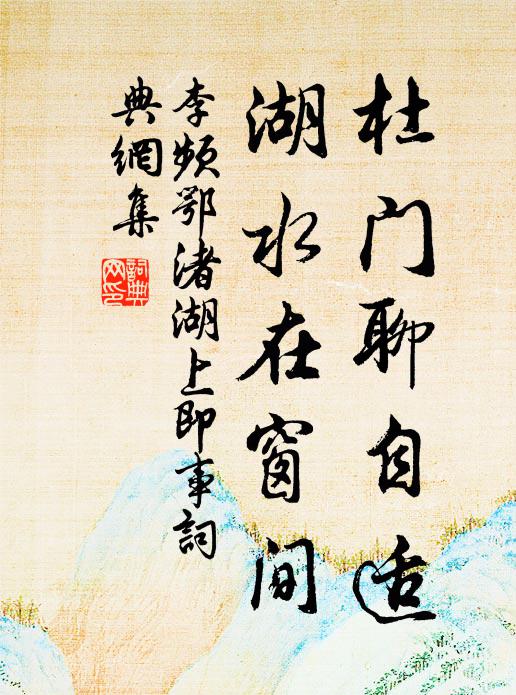 杜门聊自适
湖水在窗间
李频鄂渚湖上即事词
典网集
词典
网印